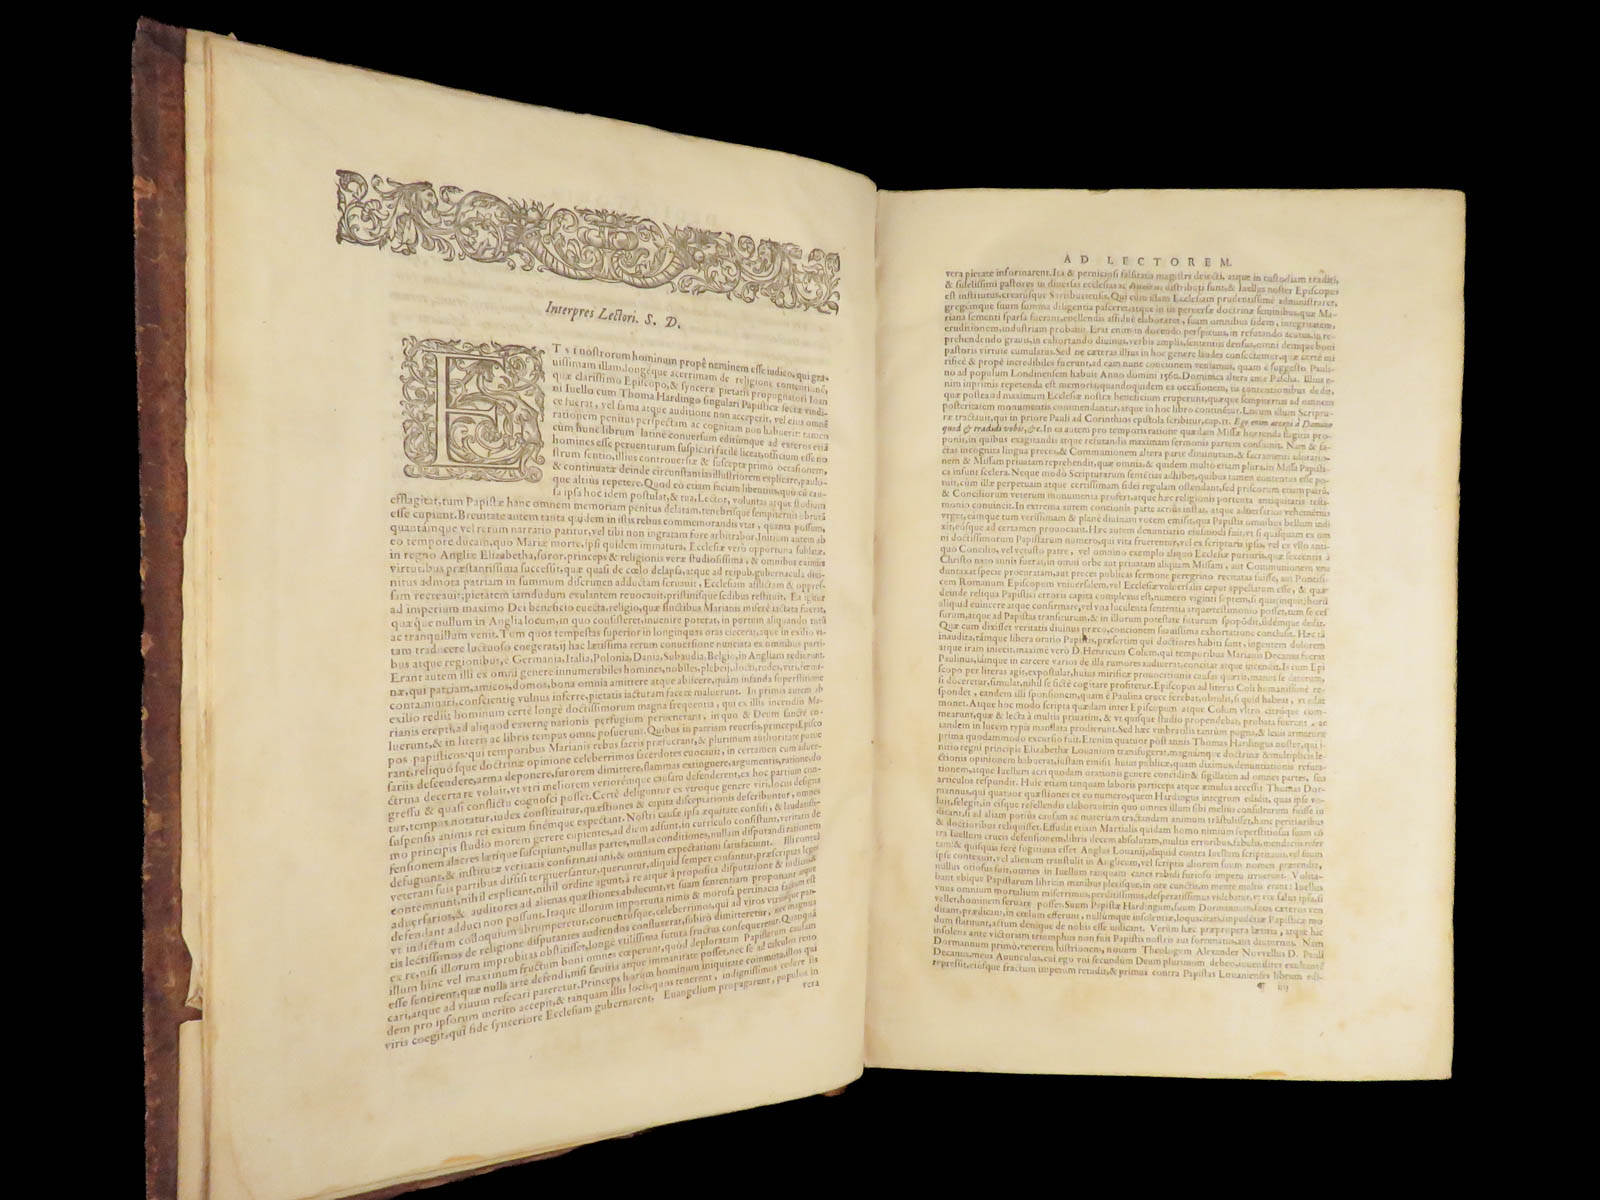 Interpres Lectori. S. D.
ETsi nostrorum hominum propè neminem esse iudico, qui gra-
uissimam illam, longéque acerrimam de religione contentionem,
quæ clarissimo Episcopo, & synceræ pietatis propugnatori Ioan
ni Iuello cum Thoma Hardingo singulari Papisticæ sectæ vindi-
ce fuerat, vel fama atque auditione non acceperit, vel eius omnē
rationem penitus perspectam ac cognitam non habuerit: tamen
cùm hunc librum latinè conuersum editúmque ad exteros etiā
homines esse peruenturum suspicari facilè liceat, officium esse no
strum sentio, illius controuersiæ & susceptæ primò occasionem,
& continuatæ deinde circunstantias illustriorem explicare, paulo-
que altius repetere. Quod eò etiam faciam libentius, quò cū cau-
sa ipsa hoc idem postulat, & tua, Lector, voluntas atque studium
efflagitat, tum Papistæ hanc omnem memoriam penitus delatam, tenebrisque sempiternis obrutā
esse cupiunt. Breuitate autem tanta quidem in istis rebus commemorandis vtar, quanta possum,
quantámque vel rerum narratio patitur, vel tibi non ingratam fore arbitrabor. Initium autem ab
eo tempore ducam, quo Mariæ morte, ipsi quidem immatura, Ecclesiæ verò opportuna sublatæ,
in regno Angliæ Elizabetha, soror, princeps & religionis veræ studiosissima, & omnibus eximiis
virtutibus præstantissima successit, quæ quasi de cœlo delapsa, atque ad reipub. gubernacula diui-
nitus admota patriam in summum discrimen adductam seruauit, Ecclesiam afflictam & oppres-
sam recreauit, pietatem iamdudum exulantem reuocauit, pristinísque sedibus restituit. Ea igitur
ad imperium maximo Dei beneficio euecta, religio, quæ fluctibus Marianis miserè iactata fuerat,
quæque nullum in Anglia locum, in quo consisteret, inuenire poterat, in portum aliquando tutū
ac tranquillum venit. Tum quos tempestas superior in longinquas oras eiecerat, atque in exilio vi-
tam traducere luctuoso coegerat, ij hac lætissima rerum conuersione nunciata ex omnibus parti-
bus atque regionibus, è Germania, Italia, Polonia, Dania, Subaudia, Belgio, in Angliam redierunt.
Erant autem illi ex omni genere innumerabiles homines, nobiles, plebeij, docti, rudes, viri, fœmi-
næ, qui patriam, amicos, domos, bona omnia amittere atque abiicere, quàm infanda superstitione
contaminari, conscientiæ vulnus inferre, pietatis iacturam facere maluerunt. In primis autem ab
exilio rediit hominum certè longè doctissimorum magna frequentia, qui ex illis incendiis Ma-
rianis erepti, ad aliquod externæ nationis perfugium peruenerant, in quo & Deum sanctè co-
luerunt, & in literis ac libris tempus omne posuerunt. Quibus in patriam reuersis, princeps Episco
pos papisticos, qui temporibus Marianis rebus sacris præfuerant, & plurimum authoritate potue
rant, reliquósque doctrinæ opinione celeberrimos sacerdotes euocauit, in certamen cum aduer-
sariis descendere, arma deponere, furorem dimittere, flammas extinguere, argumentis, ratione, do
ctrina decertare voluit, vt vtri meliorem verioremque causam defenderent, ex hoc partium con-
gressu & quasi conflictu cognosci posset. Certè deliguntur ex vtroque genere viri, locus designa
tur, tempus notatur, iudex constituitur, quæstiones & capita disceptationis describuntur, omnes
suspensis animis rei exitum finémque expectant. Nostri causæ ipsa æquitate confisi, & laudatissi-
mo principis studio morem gerere cupientes, ad diem adsunt, in curriculo consistunt, veritatis de
fensionem alacres lætique suscipiunt, nullas partes, nullas conditiones, nullam disputandi rationem
defugiunt, & institutæ veritatis confirmationi, & omnium expectationi satisfaciunt. Illi contrà
veterani suis partibus diffisi tergiuersantur, queruntur, aliquid semper causantur, præscriptas leges
contemnunt, nihil explicant, nihil ordine agunt, à re atque à proposita disputatione & iudices
aduersarios, & auditores ad alienas quæstiones abducunt, vt suam sententiam proponant atque
defendant adduci non possunt. Itaque illorum importuna nimis & morosa pertinacia factum est
vt indictum colloquium abrumperetur, conuentúsque celeberrimos, qui ad viros vtriusque par-
tis lectissimos de religione disputantes audiendos confluxerat, subitò dimitteretur, nec magnus
ex re, nisi illorum improbitas obstitisset, longè vtilissima futura fructus consequeretur. Quanquā
illum hinc vel maximum fructum boni omnes cœperunt, quòd deploratam Papistarum causam
esse sentirent, quæ nulla arte defendi, nisi sæuitia atque immanitate posset, nec se ad calculos reuo
cari, atque ad viuum resecari pateretur. Princeps harum hominum iniquitate commota, illos qui
dem pro ipsorum merito accepit, & tanquam illis locis, quos tenerent, indignissimos cedere iis
viris coegit, qui fide synceriore Ecclesiam gubernarent, Euangelium propagarent, populos in
vera
AD LECTOREM.
vera pietate informarent. Ita & perniciosi falsitatis magistri deiecti, atque in custodiam traditi,
& fidelissimi pastores in diuersas ecclesias ac diœceses distributi sunt, & Iuellus noster Episcopus
est institutus, creatúsque Sarisburiensis. Qui cùm illam Ecclesiam prudentissimè administraret,
gregémque suum summa diligentia pasceret, atque in iis peruersæ doctrinæ seminibus, quæ Ma-
riana sementi sparsa fuerant, euellendis assiduè elaboraret, suam omnibus fidem, integritatem,
eruditionem, industriam probauit. Erat enim in docendo perspicuus, in refutando acutus, in re-
prehendendo grauis, in exhortando diuinus, verbis amplis, sententiis densus, omni denique boni
pastoris virtute cumulatus. Sed ne cæteras illius in hoc genere laudes consectemur, quæ certè mi
rificè & propè incredibiles fuerunt, ad eam nunc concionem veniamus, quam è suggesto Pauli-
no ad populum Londinensem habuit Anno domini 1560. Dominica altera ante Pascha. Illius e-
nim inprimis repetenda est memoria, quandoquidem ea occasionem, iis contentionibus dedit,
quæ postea ad maximum Ecclesiæ nostræ beneficium eruperunt, quæque sempiternis ad omnem
posteritatem monumentis commendantur, atque in hoc libro continentur. Locum illum Scriptu-
ræ tractauit, qui in priore Pauli ad Corinthios epistola scribitur, cap. 11. Ego enim accepi à Domino
quod & tradidi vobis, &c. In ea autem pro temporis ratione quædam Missæ horrenda flagitia pro-
ponit, in quibus exagitandis atque refutandis maximam sermonis partem consumit. Nam & sa-
ctas incognita lingua preces, & Communionem altera parte diminutam, & sacramenti adoratio-
nem & Missam priuatam reprehendit, quæ omnia, & quidem multo etiam plura, in Missa Papisti-
ca insunt scelera. Neque modò Scripturarum sententias adhibet, quibus tamen contentus esse po-
tuit, cùm illæ perpetuam atque certissimam fidei regulam ostendant, sed priscorum etiam patrū,
& Conciliorum veterum monumenta profert, atque hæc religionis portenta antiquitatis testi-
monio conuincit. In extrema autem concionis parte acriùs instat, atque aduersarios vehementiùs
vrget, eámque tum verissimam & planè diuinam vocem emisit, qua Papistis omnibus bellum indi
xit, eosque ad certamen prouocauit. Hæc autem denuntiatio eiusmodi fuit, vt si quisquam ex om
ni doctissimorum Papistarum numero, qui vita fruerentur, vel ex scripturis ipsis, vel ex vllo anti-
quo Concilio, vel vetusto patre, vel omnino exemplo aliquo Ecclesiæ purioris, quæ sexcentis à
Christo nato annis fuerat, in omni orbe aut priuatam aliquam Missam, aut Communionem vna
duntaxat specie procuratam, aut preces publicas sermone peregrino recitatas fuisse, aut Pontifi-
cem Romanum Episcopum vniuersalem, vel Ecclesiæ vniuersalis caput appellatum esse, & quæ
deinde reliqua Papistici erroris capita complexus est, numero viginti septem, si quis, inquit, horū
aliquid euincere atque confirmare, vel vna luculenta sententia atque testimonio posset, tum se ces
surum, atque ad Papistas transiturum, & in illorum potestate futurum spopondit, fidémque dedit.
Quæ cum dixisset veritatis diuinus præco, concionem suauissima exhortatione conclusit. Hæc tā
inaudita, támque libera oratio Papistis, præsertim qui doctiores habiti sunt, ingentem dolorem
atque iram iniecit, maximè verò D. Henricum Colum, qui temporibus Marianis Decanus fuerat
Paulinus, iámque in carcere varios de illa rumores audierat, concitat atque incendit. Is cum Epi
scopo per literas agit, expostulat, huius mirificæ prouocationis causas quærit, manus se daturum,
si doceretur, simulat, nihil se sictè cogitare profitetur. Episcopus ad literas Coli humanissimè re-
spondet, eandem illi sponsionem, quam è Paulina cruce ferebat, obtulit, si quid habeat, vt edat
monet. Atque hoc modo scripta quædam inter Episcopum atque Colum vltro citróque com-
mearunt, quæ & lecta à multis priuatim, & vt quisque studio propendebat, probata fuerunt, ac
tandem in lucem typis mandata prodierunt. Sed hæc vmbratilis tantùm pugna, & leuis armaturæ
prima quodammodo excursio fuit. Etenim quatuor post annis Thomas Hardingus noster, qui i-
nitio regni principis Elizabethæ Louanium transfugerat, magnámque doctrinæ & multiplicis le-
ctionis opinionem habuerat, iustam emisit huius publicæ, quam diximus, denuntiationis refuta-
tionem, atque Iuellum acri quodam orationis genere concidit & sigillatim ad omnes partes, seu
articulos respondit. Huic etiam tanquam laboris particeps atque æmulus accessit Thomas Dor-
mannus, qui quatuor quæstiones ex eo numero, quem Hardingus integrum edidit, quas ipse vo-
luit, selegit, in eisque refellendis elaborauit, in quo omnes illum sibi meliùs consulturum fuisse in
dicant, si ad aliam potiùs causam ac materiam tractandam animum trastulisset, hanc peritioribus
& doctioribus reliquisset. Effudit etiam Martialis quidam homo nimium superstitiosus suam cō
tra Iuellum crucis defensionem, libris decem absolutam, multis erroribus, fabulis, mendaciis refer
tam: & quisquis ferè fugitiuus esset Anglus Louanij, aliquid contra Iuellum scriptitauit, vel suum
ipse contexuit, vel alienum transtulit in Anglicum, vel scriptis aliorum suum nomen prætendit,
nullus otiosus fuit, omnes in Iuellum tanquam canes rabidi furioso impetu irruerunt. Volita-
bant vbique Papistarum libri, in manibus plerisque, in ore cunctis, in mente multis erant: Iuellus
vnus omnium mortalium miserrimus, perditissimus, desperatissimus videbatur, vt vix salus ipsa, si
vellet, hominem seruare posset. Suum Papistæ Hardingum, suum Dormannum, suos cæteros ven
ditant, prædicant, in cœlum efferunt, nullumque insolentiæ, loquacitatis, impudentiæ Papisticæ mo
dum statuunt, actum denique de nobis esse iudicant. Verùm hæc præpropera lætitia, atque hic
insolens ante victoriam triumphus non fuit Papistis nostris aut fortunatus, aut diuturnus. Nam
Dormannum primò, veterem histrionem, nouum Theologum Alexander Novvellus D. Pauli
Decanus, meus Auunculus, cui ego vni secundum Deum plurimum debeo, iuueniliter exultantē
repressit, eiúsque fractum imperum retudit, & primus contra Papistas Louanienses librum edi-
¶ iij